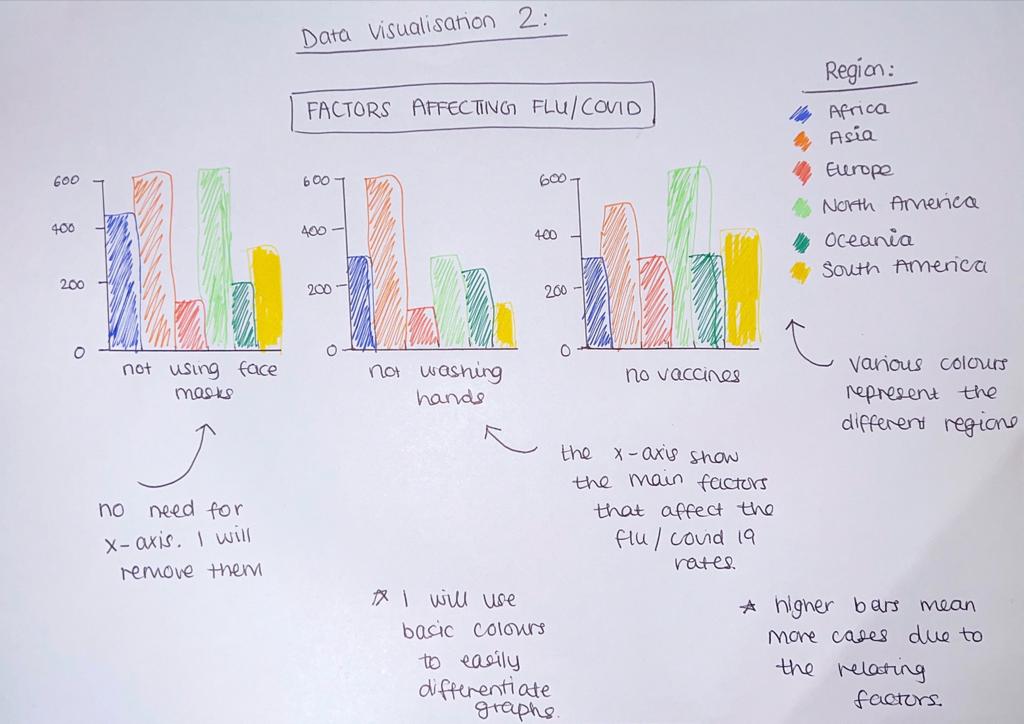 Data Visualisation 2:
FACTORS AFFECTING FLU/COVID
Region:
Africa
Asia
Europe
North America
Oceania
South America
600
400
200
0
not using face
masks
600
400
200
0
not washing
hands
600
400
200
0
no vaccines
various colours
represent the
different regions
no need for
x-axis. I will
remove them
the x-axis show
the main factors
that affect the
flu/covid 19
rates.
☆ I will use
basic colours
to easily
differentiate
graphs.
☆ higher bars mean
more cases due to
the relating
factors.